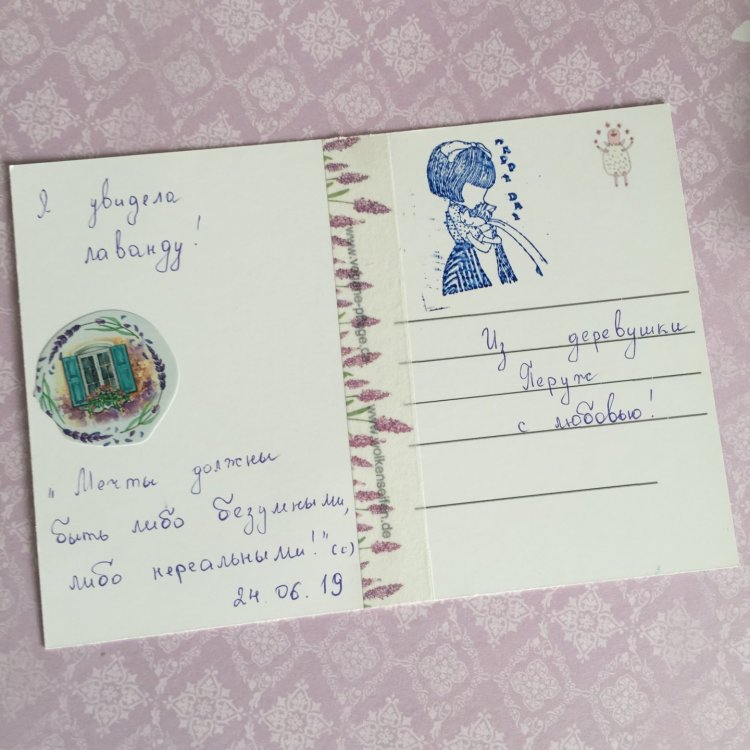 Я увидела
лаванду!
"Мечты должны
быть либо безумными,
либо нереальными!" (с)
24.06.19
HAPPY DAY
Из деревушки
Перуж
с любовью!
www.wolkenseifen.de